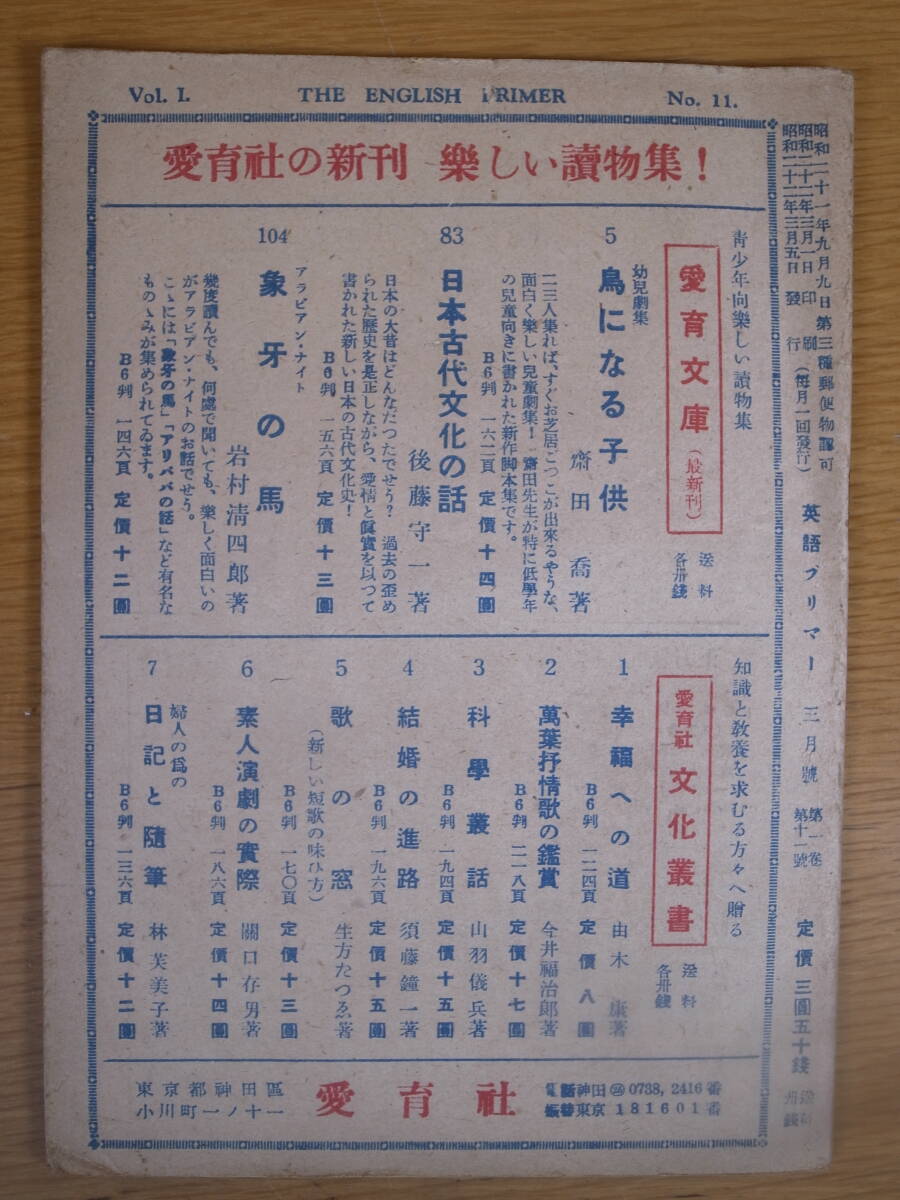 Vol. I. THE ENGLISH PRIMER No. 11.
昭和二十一年九月九日第三種郵便物認可
昭和二十二年三月一日印刷
昭和二十二年三月五日發行
(每月一回發行)
英語プリマー 三月號
第一卷
第十一號
定價三圓五十錢
送料
卅錢
愛育社の新刊 樂しい讀物集!
靑少年向樂しい讀物集
愛育文庫(最新刊)
送料
各卅錢
5
幼兒劇集
鳥になる子供
齋田喬著
二三人集れば、すぐお芝居ごつこが出來るやうな、
面白く樂しい兒童劇集! 齋田先生が特に低學年
の兒童向きに書かれた新作脚本集です。
B6判 一六二頁 定價十四圓
83
日本古代文化の話
後藤守一著
日本の大昔はどんなだつたでせう? 過去の歪め
られた歷史を是正しながら、愛情と眞實を以つて
書かれた新しい日本の古代文化史!
B6判 一五六頁 定價十三圓
104
アラビアン・ナイト
象牙の馬
岩村淸四郞著
幾度讀んでも、何處で聞いても、樂しく面白いの
がアラビアン・ナイトのお話でせう。
こゝには「象牙の馬」「アリババの話」など有名な
ものゝみが集められてゐます。
B6判 一四六頁 定價十二圓
知識と敎養を求むる方々へ贈る
愛育社 文化叢書
送料
各卅錢
1
幸福への道
由木康著
B6判 一二四頁 定價八圓
2
萬葉抒情歌の鑑賞
今井福治郞著
B6判 二一八頁 定價十七圓
3
科學叢話
山羽儀兵著
B6判 一九四頁 定價十五圓
4
結婚の進路
須藤鐘一著
B6判 一九六頁 定價十五圓
5
歌の窓
(新しい短歌の味ひ方)
生方たつゑ著
B6判 一七〇頁 定價十三圓
6
素人演劇の實際
關口存男著
B6判 一八六頁 定價十四圓
7
婦人の爲の
日記と隨筆
林芙美子著
B6判 一三六頁 定價十二圓
東京都神田區
小川町一ノ十一
愛育社
電話神田㉕0738, 2416番
振替東京181601番